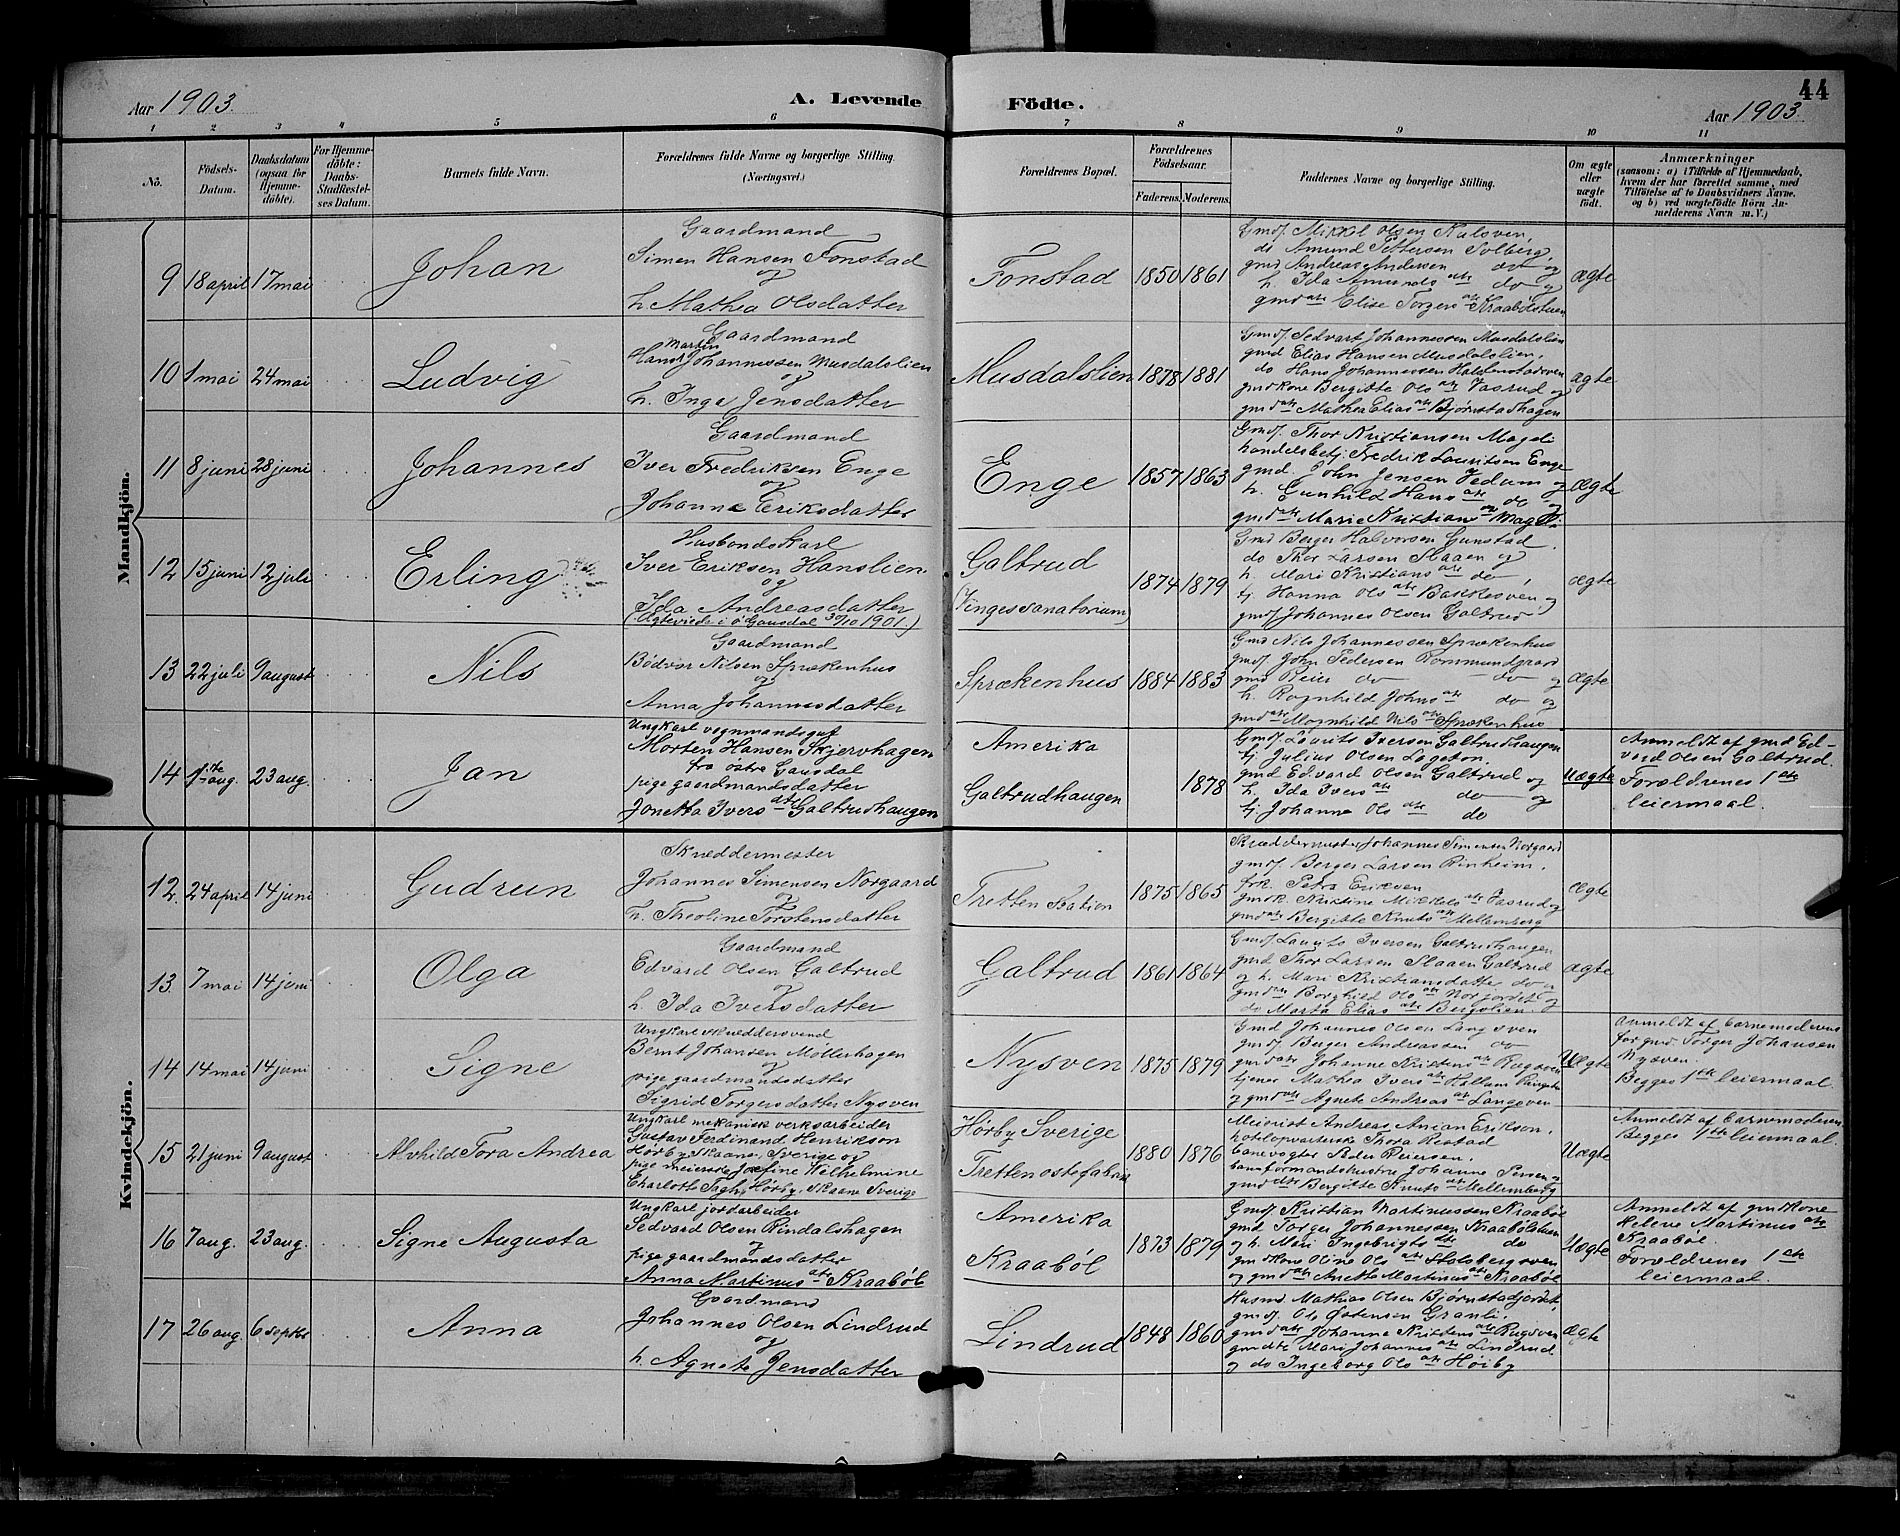 Aar 1903.
A. Levende
Födte.
44
Aar 1903.
1 2 3 4 5 6 7 8 9 10 11
No.
Födsels-
Datum.
Daabsdatum
(ogsaa for
Hjemme-
döbte).
For Hjemme-
döbte:
Daabs-
Stadfæstel-
ses Datum.
Barnets fulde Navn.
Forældrenes fulde Navne og borgerlige Stilling.
(Næringsvei.)
Forældrenes Bopæl.
Forældrenes
Födselsaar.
Faderens. Moderens.
Faddernes Navne og borgerlige Stilling.
Om ægte
eller
uægte
födt.
Anmærkninger
(saasom: a) i Tilfælde af Hjemmedaab,
hvem der har forrettet samme, med
Tilföielse af to Daabsvidners Navne,
og b) ved uægtefödte Börn An-
melderens Navn m. V.)
Mandkjön.
9 18 april 17 mai
Johan
Gaardmand
Simen Hansen Fonstad
og
h. Mathea Olsdatter
Fonstad
1850 1861
Gmdf. Mikkel Olsen
do Amund Pettersen Solberg,
gmd Andreas Andersen do og
h. Ida Amunds dtr do og
gmd dtr Elise Torgers dtr
ægte
10 1 mai 24 mai
Ludvig
Gaardmand
Martin
Hans Johannessen Musdalslien
og
h. Inga Jensdatter
Musdalslien
1878 1881
Gmdf. Sedvart Johannessen Musdalslien
gmd Elias Hansen Musdalslien,
do Hans Johannessen
gmdkone Bergitte Ols dtr Jasrud og
gmd dtr Mathea Elias dtr Bjørnstadhagen
ægte
11 8 juni 28 juni
Johannes
Gaardmand
Iver Fredriksen Enge
og
Johanne Eriksdatter
Enge
1857 1863
Gmdf. Thor Kristiansen Mageli
handelsbetj. Fredrik Lauritsen Enge
gmd. John Jensen Jedum og
h. Gunhild Hans dtr do og
gmd dtr Marie Kristians dtr Mageli
ægte
12 15 juni 12 juli
Erling
Husbondskarl
Iver Eriksen Hanslien
og
Ida Andreasdatter
(Ægteviede i ö Gausdal 30/10 1901.)
Galtrud
(Vinges sanatorium)
1874 1879
Gmd Berger Halvorsen Gunstad,
do Thor Larsen Slaaen og
h. Mari Kristians dtr do,
tj. Hanna Ols dtr og
gmdf Johannes Olsen Galtrud
ægte
13 22 juli 9 august
Nils
Gaardmand
Bødvar Nilsen Sprækenhus
og
Anna Johannesdatter
Sprækenhus
1884 1883
Gmd Nils Johannessen Sprækenhus
gmdf. John Pedersen Rommundgaard
gmd Peier do do og
h. Ragnhild Johns dtr do og
gmd dtr Magnhild Nils dtr Sprækenhus
ægte
14 1ste aug. 23 aug.
Jan
Ungkarl vognmandsgut
Morten Hansen Skjervhagen
fra östre Gausdal
pige gaardmandsdatter
Jonetta Ivers dtr Galtrudhaugen
Amerika
Galtrudhaugen
1878
Gmdf. Lauits Iversen Galtrudhaugen
tj. Julius Olsen
gmd Edvard Olsen Galtrud og
h. Ida Ivers dtr do og
tj. Johanne Ols dtr do
uægte
Anmeldt af gmd Ed-
vard Olsen Galtrud.
Forældrenes 1ste
leiermaal.
Kvindekjön.
12. 24 april 14 juni
Gudrun
Skræddermester
Johannes Simensen Norgaard
og
h. Theoline Torstensdatter
Tretten Station
1875 1865
Skræddermester Johannes Simensen Norgaard
gmdf. Berger Larsen Rinheim,
frk. Petra Eriksen
gmdk. Kristine Mikkels dtr Jasrud og
gmd dtr Bergitte Knuts dtr Mellemberg
ægte
13. 7 mai 14 juni
Olga
Gaardmand
Edvard Olsen Galtrud
og
h. Ida Iversdatter
Galtrud
1861 1864
Gmdf. Lauits Iversen Galtrudhaugen
gmd Thor Larsen Slaaen Galtrud
og h. Mari Kristiansdatter do,
gmd dtr Borghild Ols dtr Norjordet og
do Marta Elias dtr
ægte
14 14 mai 14 juni
Signe
Ungkarl skræddersvend
Bernt Johansen Møllerhagen
og
pige gaardmandsdatter
Sigrid Torgersdatter Nysven
Nysven
1875 1879
Gmd Johannes Olsen Langsven
gmdf. Berger Andreassen do
gmd dtr Johanne Kristens dtr Rugsven
tjener Mathea Ivers dtr
og gmd dtr Agnete Andreas dtr Langsven
Uægte
Anmeldt af barnemoderens
far gmd. Torger Johansen
Nysven.
Begges 1ste leiermaal.
15 21 juni 9 august
Alvhild Tora Andrea
Ungkarl mekanisk verksarbeider
Gustav Ferdinand Henrikson
Hörby Skaane, Sverige og
pige meierske Josefine Wilhelmine
Charlotte, Hörby, Skaane Sverige
Hörby Sverige
Tretten ostefabrik
1880 1876
Meierist Andreas Anian Erikson,
hotelopvarterske Thora Rostad
banevogter Peder Reiersen,
baneformandshustru Johanne Persen og
gmd dtr Bergitte Knuts dtr Mellemberg
Uægte
Anmeldt af barnemoderen
Begges 1ste leiermaal.
16 7 aug. 23 aug.
Signe Augusta
Ungkarl jordarbeider
Sedvard Olsen Rindalshagen
og
pige gaardmandsdatter
Anna Martinus dtr Kraaböl
Amerika
Kraaböl
1873 1879
Gmdf. Kristian Martinussen Kraaböl
gmd Torger Johannessen
og h. Mari Ingebrigts dtr do
gmdkone Oline Ols dtr Stolsbergsven
og gmd dtr Anette Martinus dtr Kraaböl
Uægte
Anmeldt af gmdkone
Helene Martinus dtr
Kraaböl.
Forældrenes 1ste
leiermaal.
17 26 aug. 6 septbr
Anna
Gaardmand
Johannes Olsen Lindrud
og
h. Agnete Jensdatter
Lindrud
1848 1860
Husmd Mathias Olsen Björnstadjordet,
gmdf. Ole Østensen Granli,
gmd dtr Johanne Kristens dtr Rugsven
gmddtr Mari Johannes dtr Lindrud
og do Ingeborg Ols dtr Höiby
ægte